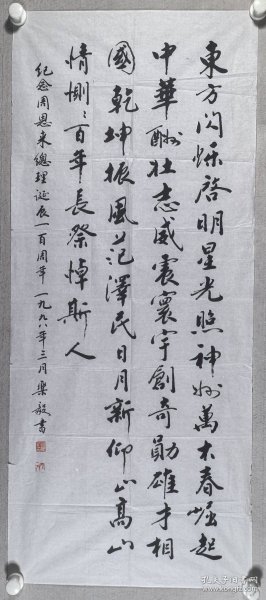 東方閃爍啓明星光照神州萬木春崛起
中華酬壯志威震寰宇創奇勛雄才相
國乾坤振風范澤民日月新仰止高山
情惻〻百年長祭悼斯人
紀念周恩来總理誕辰一百周年一九九八年三月樂毅書